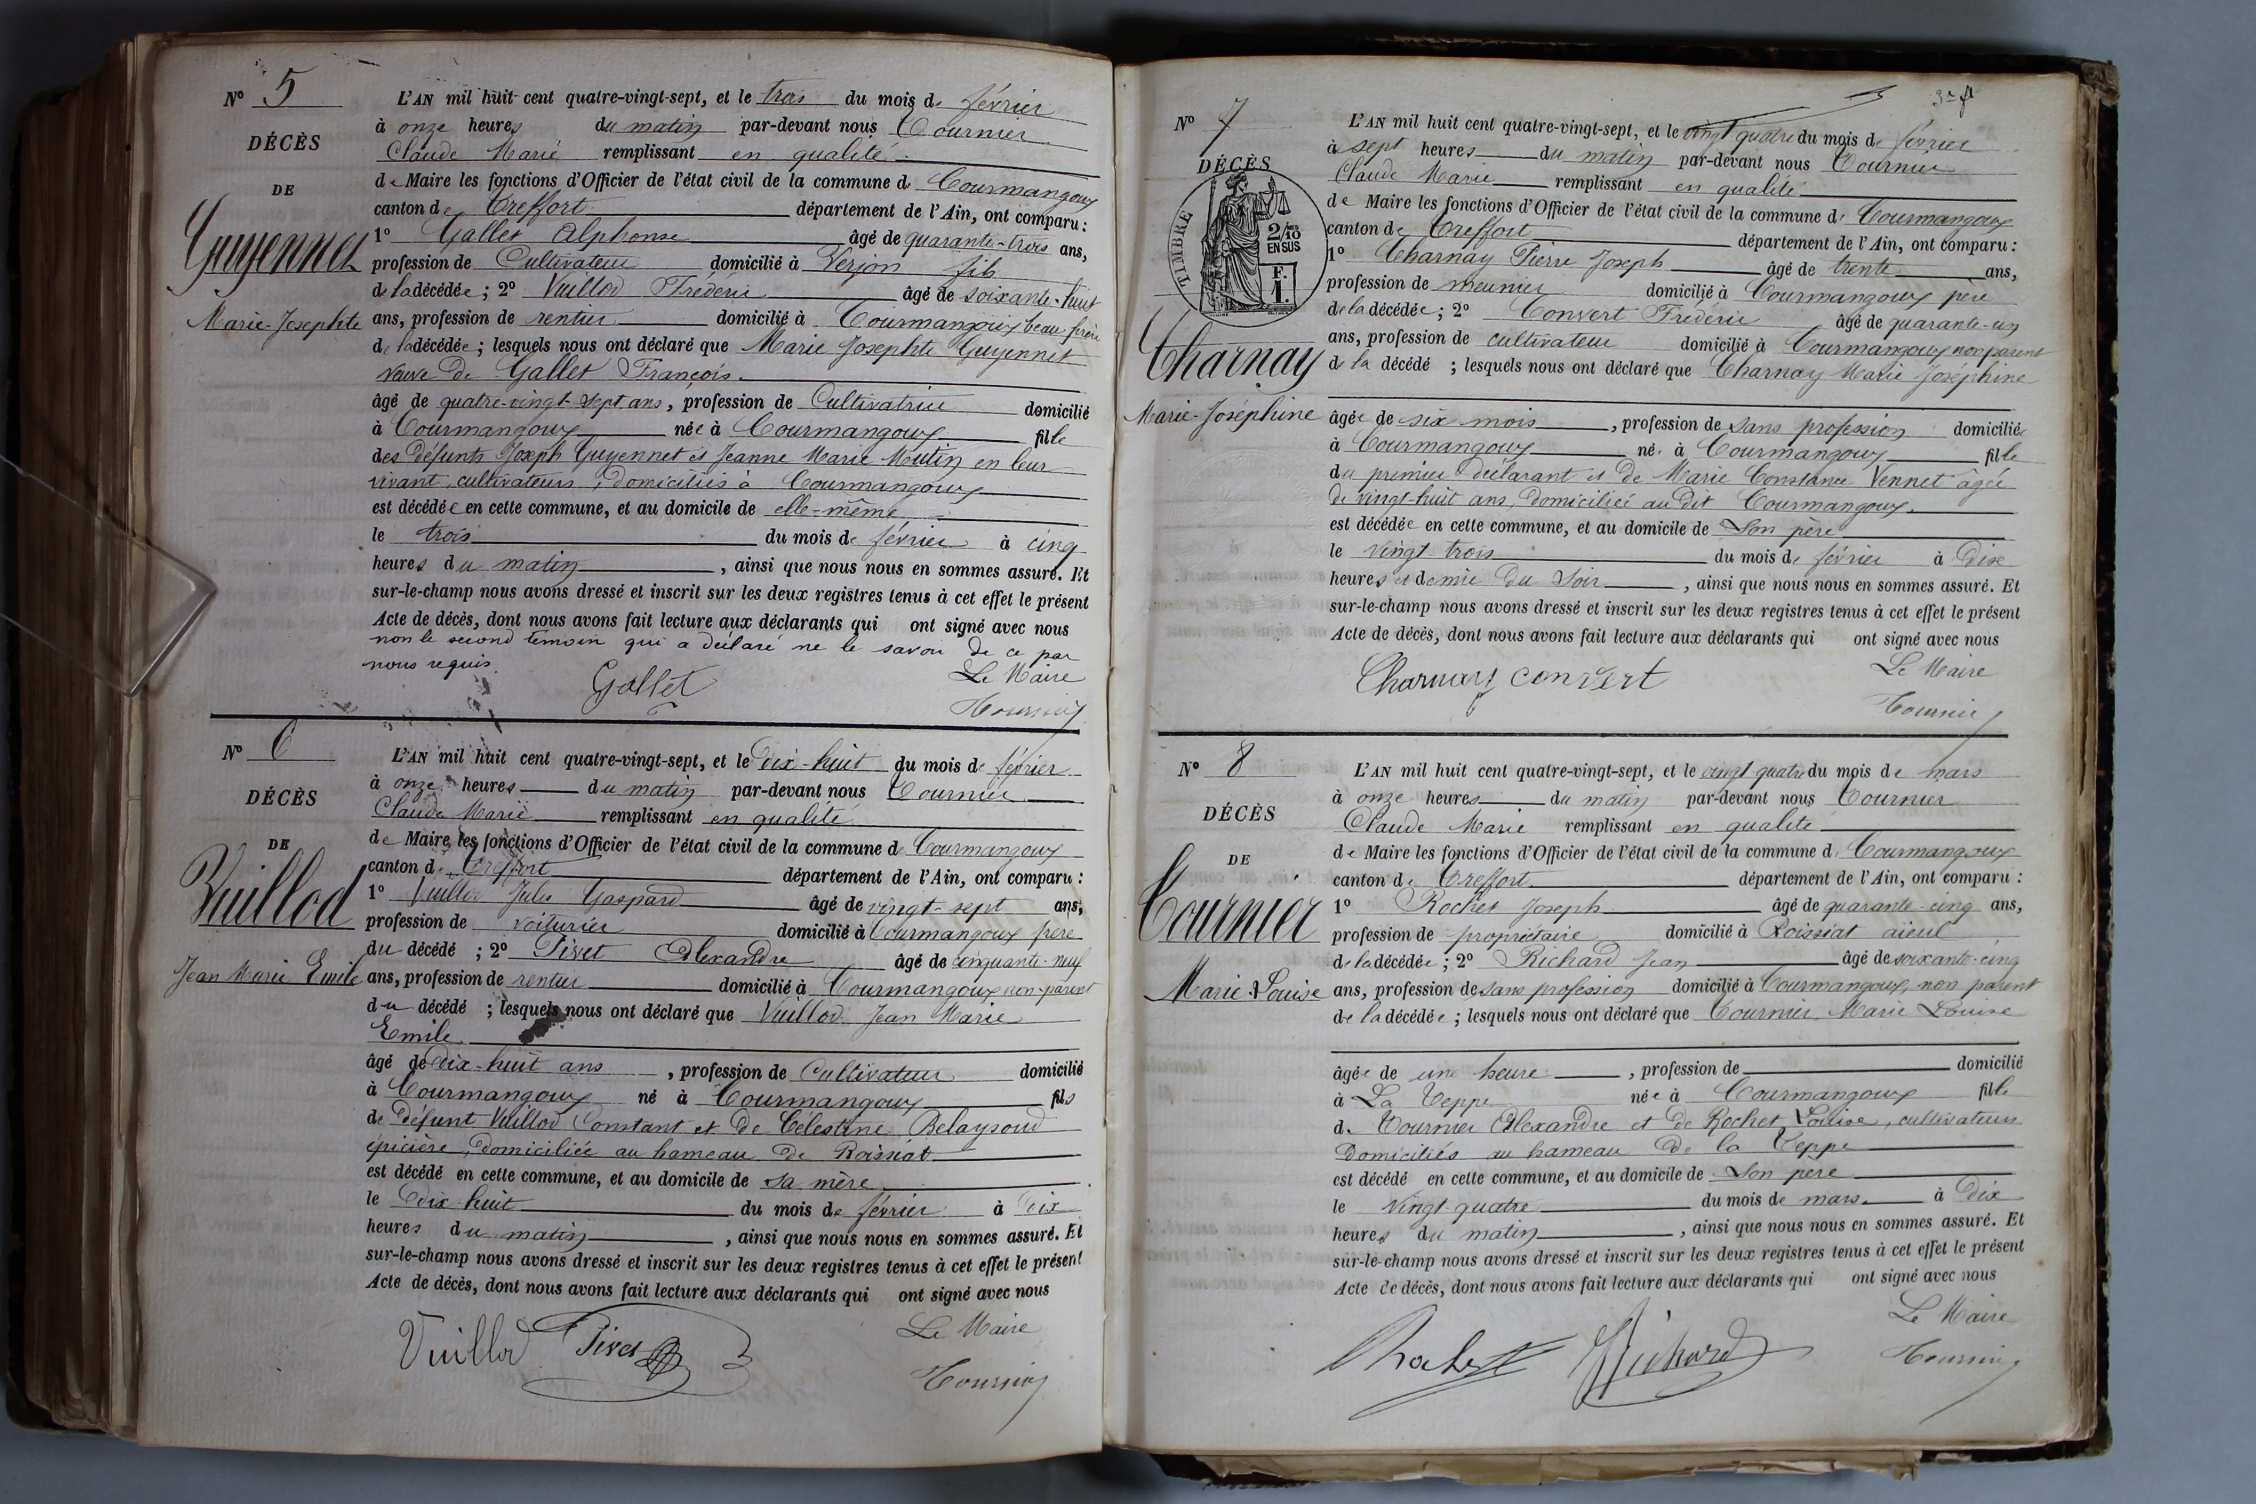 N° 5
DÉCÈS
DE
Guyennet
Marie-Josephte
L'AN mil huit cent quatre-vingt-sept, et le trois du mois de février
à onze heures du matin par-devant nous Tournier
Claude Marie remplissant en qualité
de Maire les fonctions d'Officier de l'état civil de la commune de Courmangoux
canton de Treffort département de l'Ain, ont comparu :
1° Gallet Alphonse âgé de quarante-trois ans,
profession de Cultivateur domicilié à Verjon fils
de la décédée ; 2° Vuillod Frédéric âgé de soixante-huit
ans, profession de rentier domicilié à Courmangoux beau-frère
de la décédée ; lesquels nous ont déclaré que Marie Josephte Guyennet
veuve de Gallet François
âgé de quatre-vingt-sept ans, profession de Cultivatrice domicilié
à Courmangoux née à Courmangoux fille
des défunts Joseph Guyennet et Jeanne Marie Mutin en leur
vivant, cultivateurs, domiciliés à Courmangoux
est décédée en cette commune, et au domicile de elle-même
le trois du mois de février à cinq
heures du matin, ainsi que nous nous en sommes assuré. Et
sur-le-champ nous avons dressé et inscrit sur les deux registres tenus à cet effet le présent
Acte de décès, dont nous avons fait lecture aux déclarants qui ont signé avec nous
non le second témoin qui a déclaré ne le savoir de ce par
nous requis.
Le Maire
Gallet
Tournier
N° 6
DÉCÈS
DE
Vuillod
Jean Marie Emile
L'AN mil huit cent quatre-vingt-sept, et le dix-huit du mois de février
à onze heures du matin par-devant nous Tournier
Claude Marie remplissant en qualité
de Maire les fonctions d'Officier de l'état civil de la commune de Courmangoux
canton de Treffort département de l'Ain, ont comparu :
1° Vuillod Jules Gaspard âgé de vingt-sept ans,
profession de voiturier domicilié à Courmangoux frère
du décédé ; 2° Pivet Alexandre âgé de cinquante-neuf
ans, profession de rentier domicilié à Courmangoux non-parent
du décédé ; lesquels nous ont déclaré que Vuillod Jean Marie
Emile
âgé de dix-huit ans, profession de Cultivateur domicilié
à Courmangoux né à Courmangoux fils
de défunt Vuillod Constant et de Célestine Belaysoud
épicière, domiciliée au hameau de Roissiat
est décédé en cette commune, et au domicile de sa mère
le dix-huit du mois de février à dix
heures du matin, ainsi que nous nous en sommes assuré. Et
sur-le-champ nous avons dressé et inscrit sur les deux registres tenus à cet effet le présent
Acte de décès, dont nous avons fait lecture aux déclarants qui ont signé avec nous
Le Maire
Vuillod Pivet
Tournier
N° 7
DÉCÈS
TIMBRE
2/10
EN SUS
F.
1.
Charnay
Marie-Joséphine
L'AN mil huit cent quatre-vingt-sept, et le vingt quatre du mois de février
à sept heures du matin par-devant nous Tournier
Claude Marie remplissant en qualité
de Maire les fonctions d'Officier de l'état civil de la commune de Courmangoux
canton de Treffort département de l'Ain, ont comparu :
1° Charnay Pierre Joseph âgé de trente ans,
profession de meunier domicilié à Courmangoux père
de la décédée ; 2° Convert Frédéric âgé de quarante-un
ans, profession de cultivateur domicilié à Courmangoux non parent
de la décédé ; lesquels nous ont déclaré que Charnay Marie Joséphine
âgée de six mois, profession de sans profession domiciliée
à Courmangoux née à Courmangoux fille
du premier déclarant et de Marie Constance Vennet âgée
de vingt-huit ans, domiciliée au dit Courmangoux.
est décédée en cette commune, et au domicile de son père
le vingt trois du mois de février à dix
heures et demie du soir, ainsi que nous nous en sommes assuré. Et
sur-le-champ nous avons dressé et inscrit sur les deux registres tenus à cet effet le présent
Acte de décès, dont nous avons fait lecture aux déclarants qui ont signé avec nous
Le Maire
Charnay convert
Tournier
N° 8
DÉCÈS
DE
Tournier
Marie Louise
L'AN mil huit cent quatre-vingt-sept, et le vingt quatre du mois de mars
à onze heures du matin par-devant nous Tournier
Claude Marie remplissant en qualité
de Maire les fonctions d'Officier de l'état civil de la commune de Courmangoux
canton de Treffort département de l'Ain, ont comparu :
1° Rochet Joseph âgé de quarante-cinq ans,
profession de propriétaire domicilié à Roissiat aieul
de la décédée ; 2° Richard Jean âgé de soixante-cinq
ans, profession de sans profession domicilié à Courmangoux, non parent
de la décédée ; lesquels nous ont déclaré que Tournier Marie Louise
âgée de une heure, profession de domicilié
à La Teppe née à Courmangoux fille
de Tournier Alexandre et de Rochet Louise, cultivateurs
domiciliés au hameau de la Teppe
est décédé en cette commune, et au domicile de son père
le vingt-quatre du mois de mars à dix
heures du matin, ainsi que nous nous en sommes assuré. Et
sur-le-champ nous avons dressé et inscrit sur les deux registres tenus à cet effet le présent
Acte de décès, dont nous avons fait lecture aux déclarants qui ont signé avec nous
Le Maire
Rochet Richard
Tournier